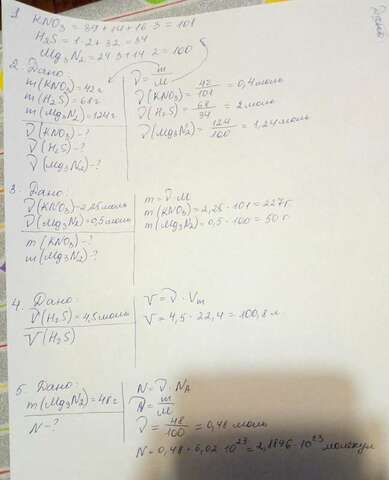 Дано
1. KNO₃ = 39+14+16·3 = 101
H₂S = 1·2+32 = 34
Mg₃N₂ = 24·3+14·2 = 100
2. Дано:
m(KNO₃) = 42г
m(H₂S) = 68г
m(Mg₃N₂) = 124г
ν(KNO₃) - ?
ν(H₂S) - ?
ν(Mg₃N₂) - ?
ν = m/M
ν(KNO₃) = 42/101 = 0,4моль
ν(H₂S) = 68/34 = 2моль
ν(Mg₃N₂) = 124/100 = 1,24моль
3. Дано:
ν(KNO₃) = 2,25моль
ν(Mg₃N₂) = 0,5моль
m(KNO₃) - ?
m(Mg₃N₂) - ?
m = ν·M
m(KNO₃) = 2,25·101 = 227г
m(Mg₃N₂) = 0,5·100 = 50г
4. Дано:
ν(H₂S) = 4,5моль
V(H₂S)
V = ν·Vm
V = 4,5·22,4 = 100,8л.
5. Дано:
m(Mg₃N₂) = 48г
N - ?
N = ν·NA
ν = m/M
ν = 48/100 = 0,48 моль
N = 0,48·6,02·10²³ = 2,8896·10²³молекул